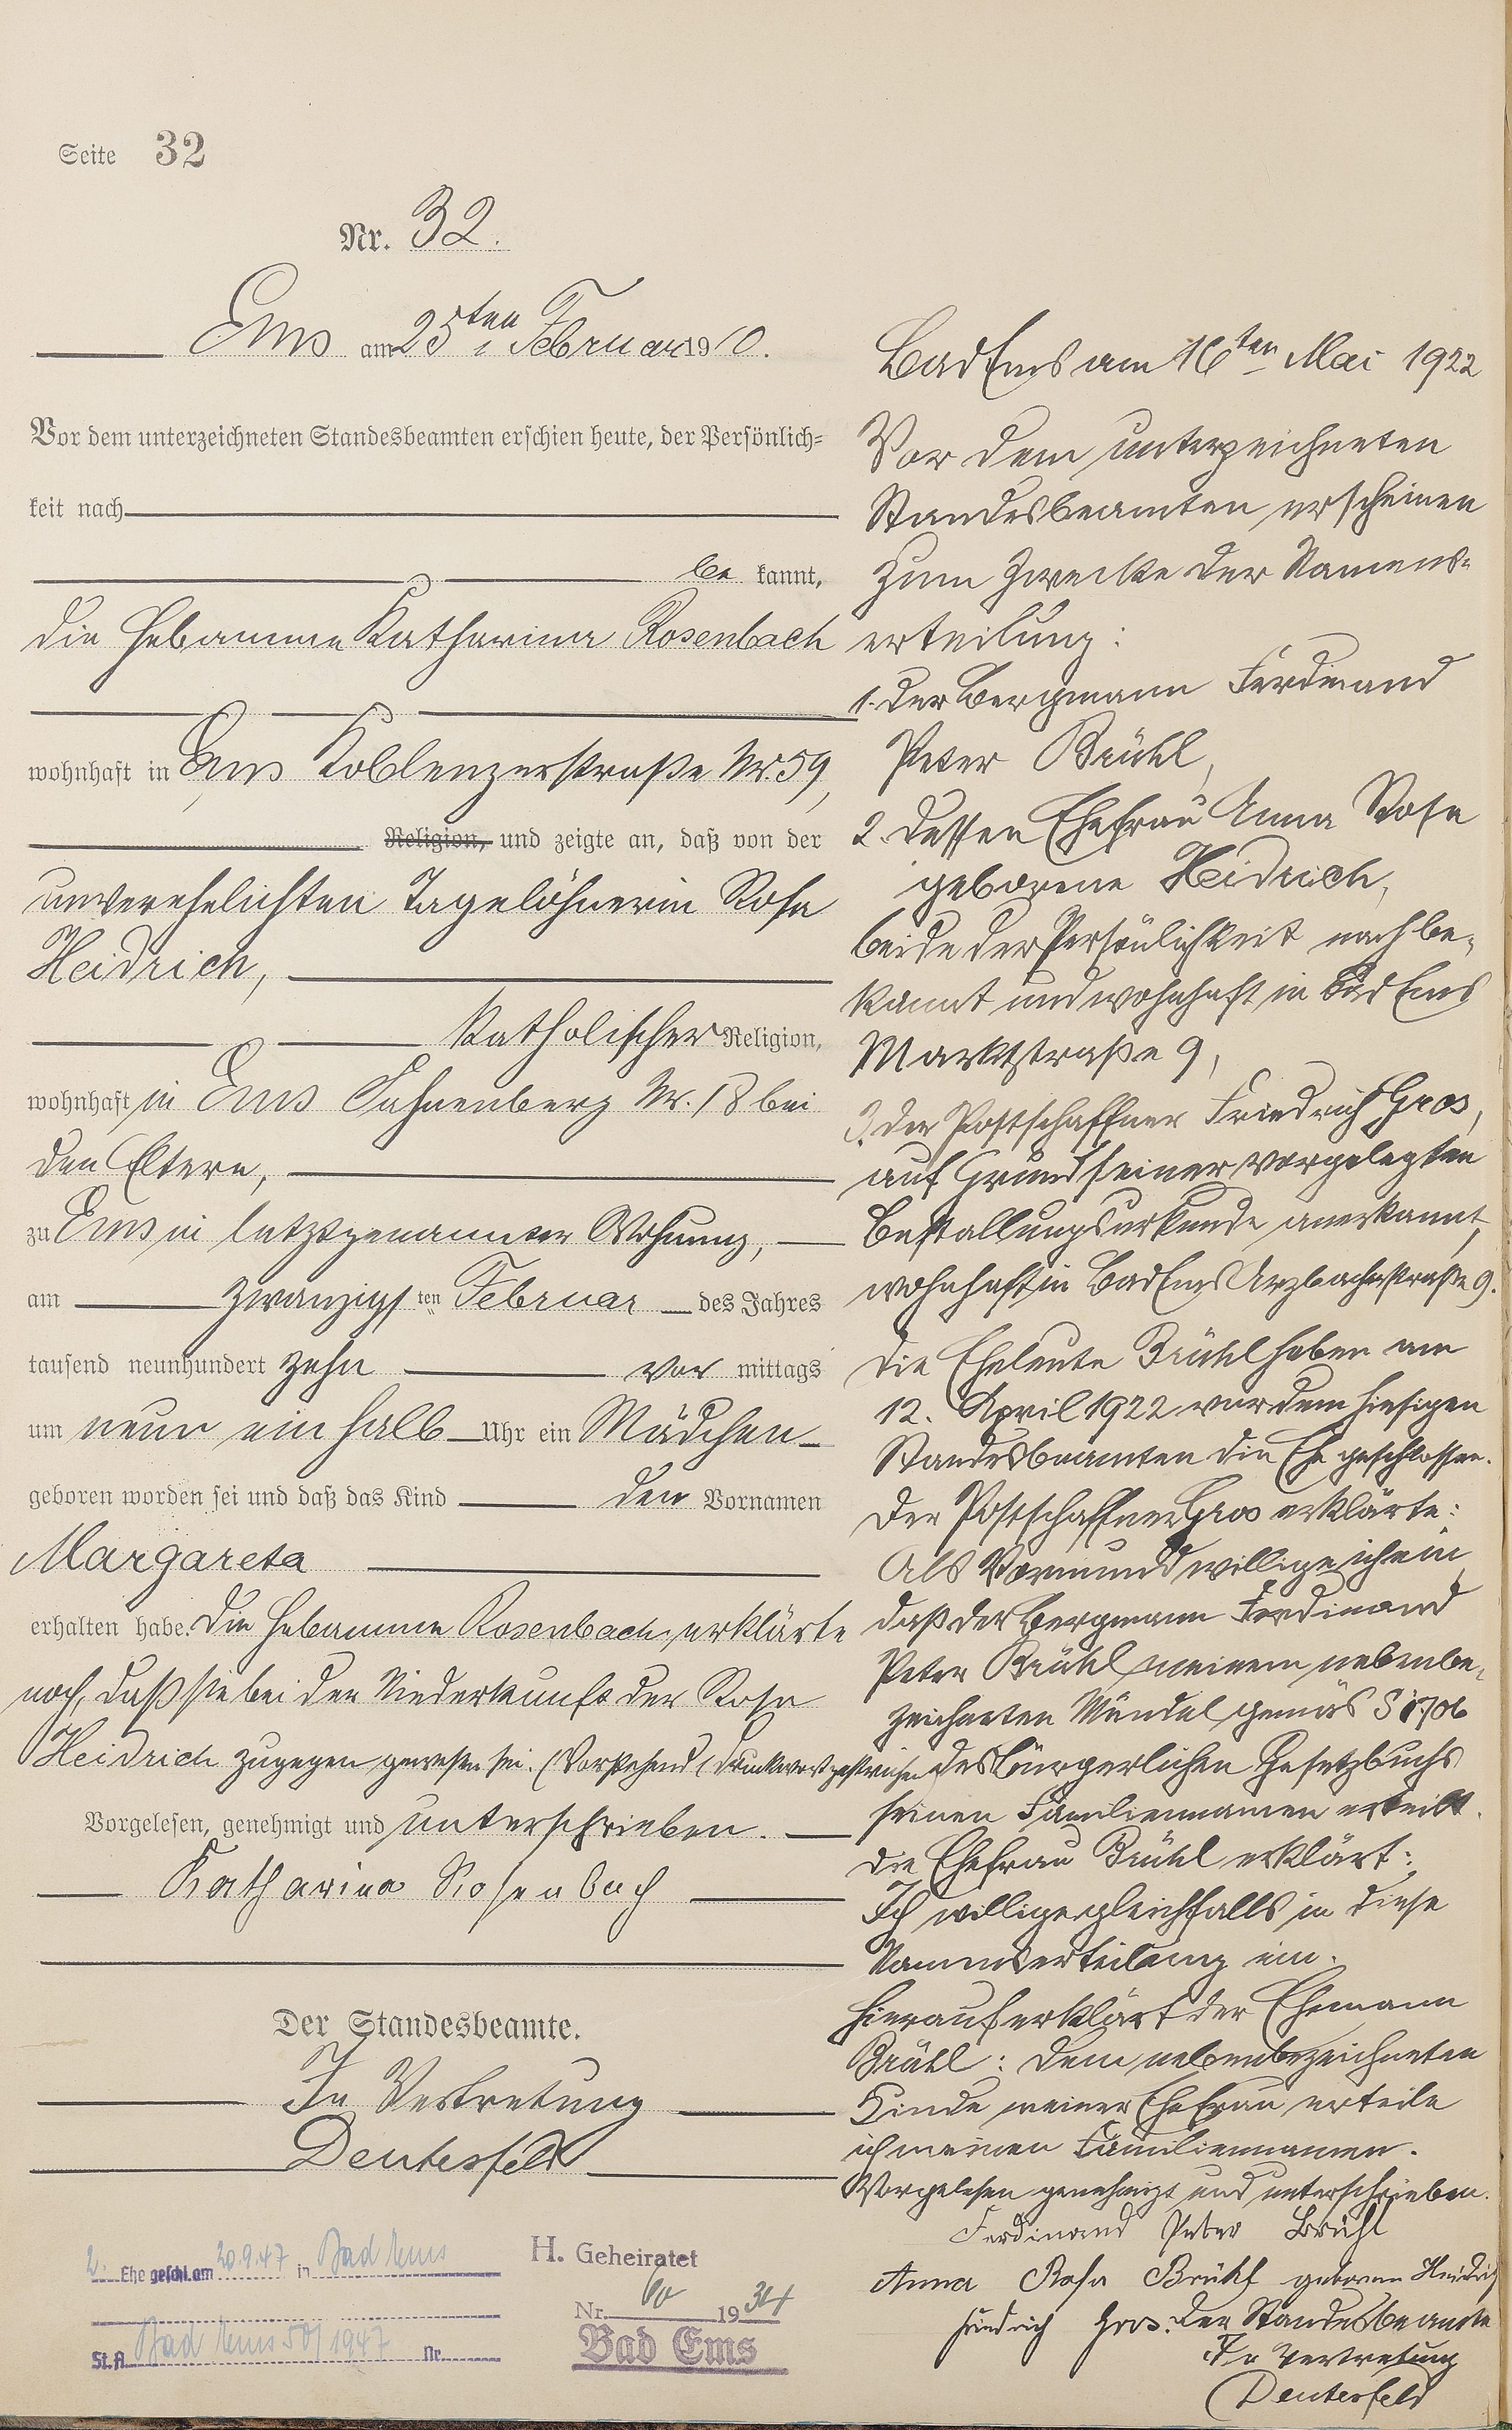 Seite 32
Nr. 32.
Ems am 25ten Februar 1910.
Vor dem unterzeichneten Standesbeamten erschien heute, der Persönlich-
keit nach
be kannt,
die Hebamme Katharina Rosenbach
wohnhaft in Ems Koblenzerstraße Nr. 59,
Religion, und zeigte an, daß von der
unverehelichten Tagelöhnerin Rosa
Heidrich,
katholischer Religion,
wohnhaft in Ems Nr. 18 bei
den Eltern,
zu Ems in letztgenannter Wohnung,
am zwanzigsten Februar des Jahres
tausend neunhundert zehn vor mittags
um neun ein halb Uhr ein Mädchen
geboren worden sei und daß das Kind den Vornamen
Margareta
erhalten habe. Die Hebamme Rosenbach erklärte
noch, daß sie bei der Niederkunft der Rosa
Heidrich zugegen gewesen sei. (Vorstehend 1 Druckwort gestrichen)
Vorgelesen, genehmigt und unterschrieben.
Katharina Rosenbach
Der Standesbeamte.
In Vertretung
Deutesfeld
2. Ehe geschl. am 20.9.47 in Bad Ems
St.A. Bad Ems 50/1947 Nr.
H. Geheiratet
Nr. 60 1934
Bad Ems
Bad Ems am 16ten Mai 1922
Vor dem unterzeichneten
Standesbeamten erscheinen
zum Zwecke der Namens-
erteilung:
1. der Bergmann Ferdinand
Peter Brühl,
2. dessen Ehefrau Anna Rosa
geborene Heidrich,
beide der Persönlichkeit nach be-
kannt und wohnhaft in Bad Ems
Marktstraße 9,
3. der Postschaffner Friedrich Gros,
auf Grund seiner vorgelegten
Bestallungsurkunde anerkannt,
wohnhaft in Bad Ems Arzbacherstraße 9.
Die Eheleute Brühl haben am
12. April 1922 vor dem hiesigen
Standesbeamten die Ehe geschlossen.
Der Postschaffner Gros erklärte:
Als Vormund willige ich ein,
daß der Bergmann Ferdinand
Peter Brühl meinem nebenbe-
zeichneten Mündel gemäs § 1706
des bürgerlichen Gesetzbuchs
seinen Familiennamen erteilt.
Die Ehefrau Brühl erklärt:
Ich willige gleichfalls in diese
Namenserteilung ein.
Hierauf erklärt der Ehemann
Brühl: Dem nebenbezeichneten
Kinde meiner Ehefrau erteile
ich meinen Familiennamen.
Vorgelesen genehmigt und unterschrieben.
Ferdinand Peter Brühl
Anna Rosa Brühl geborene Heidrich
Friedrich Gros. Der Standesbeamte
In Vertretung
Deutesfeld